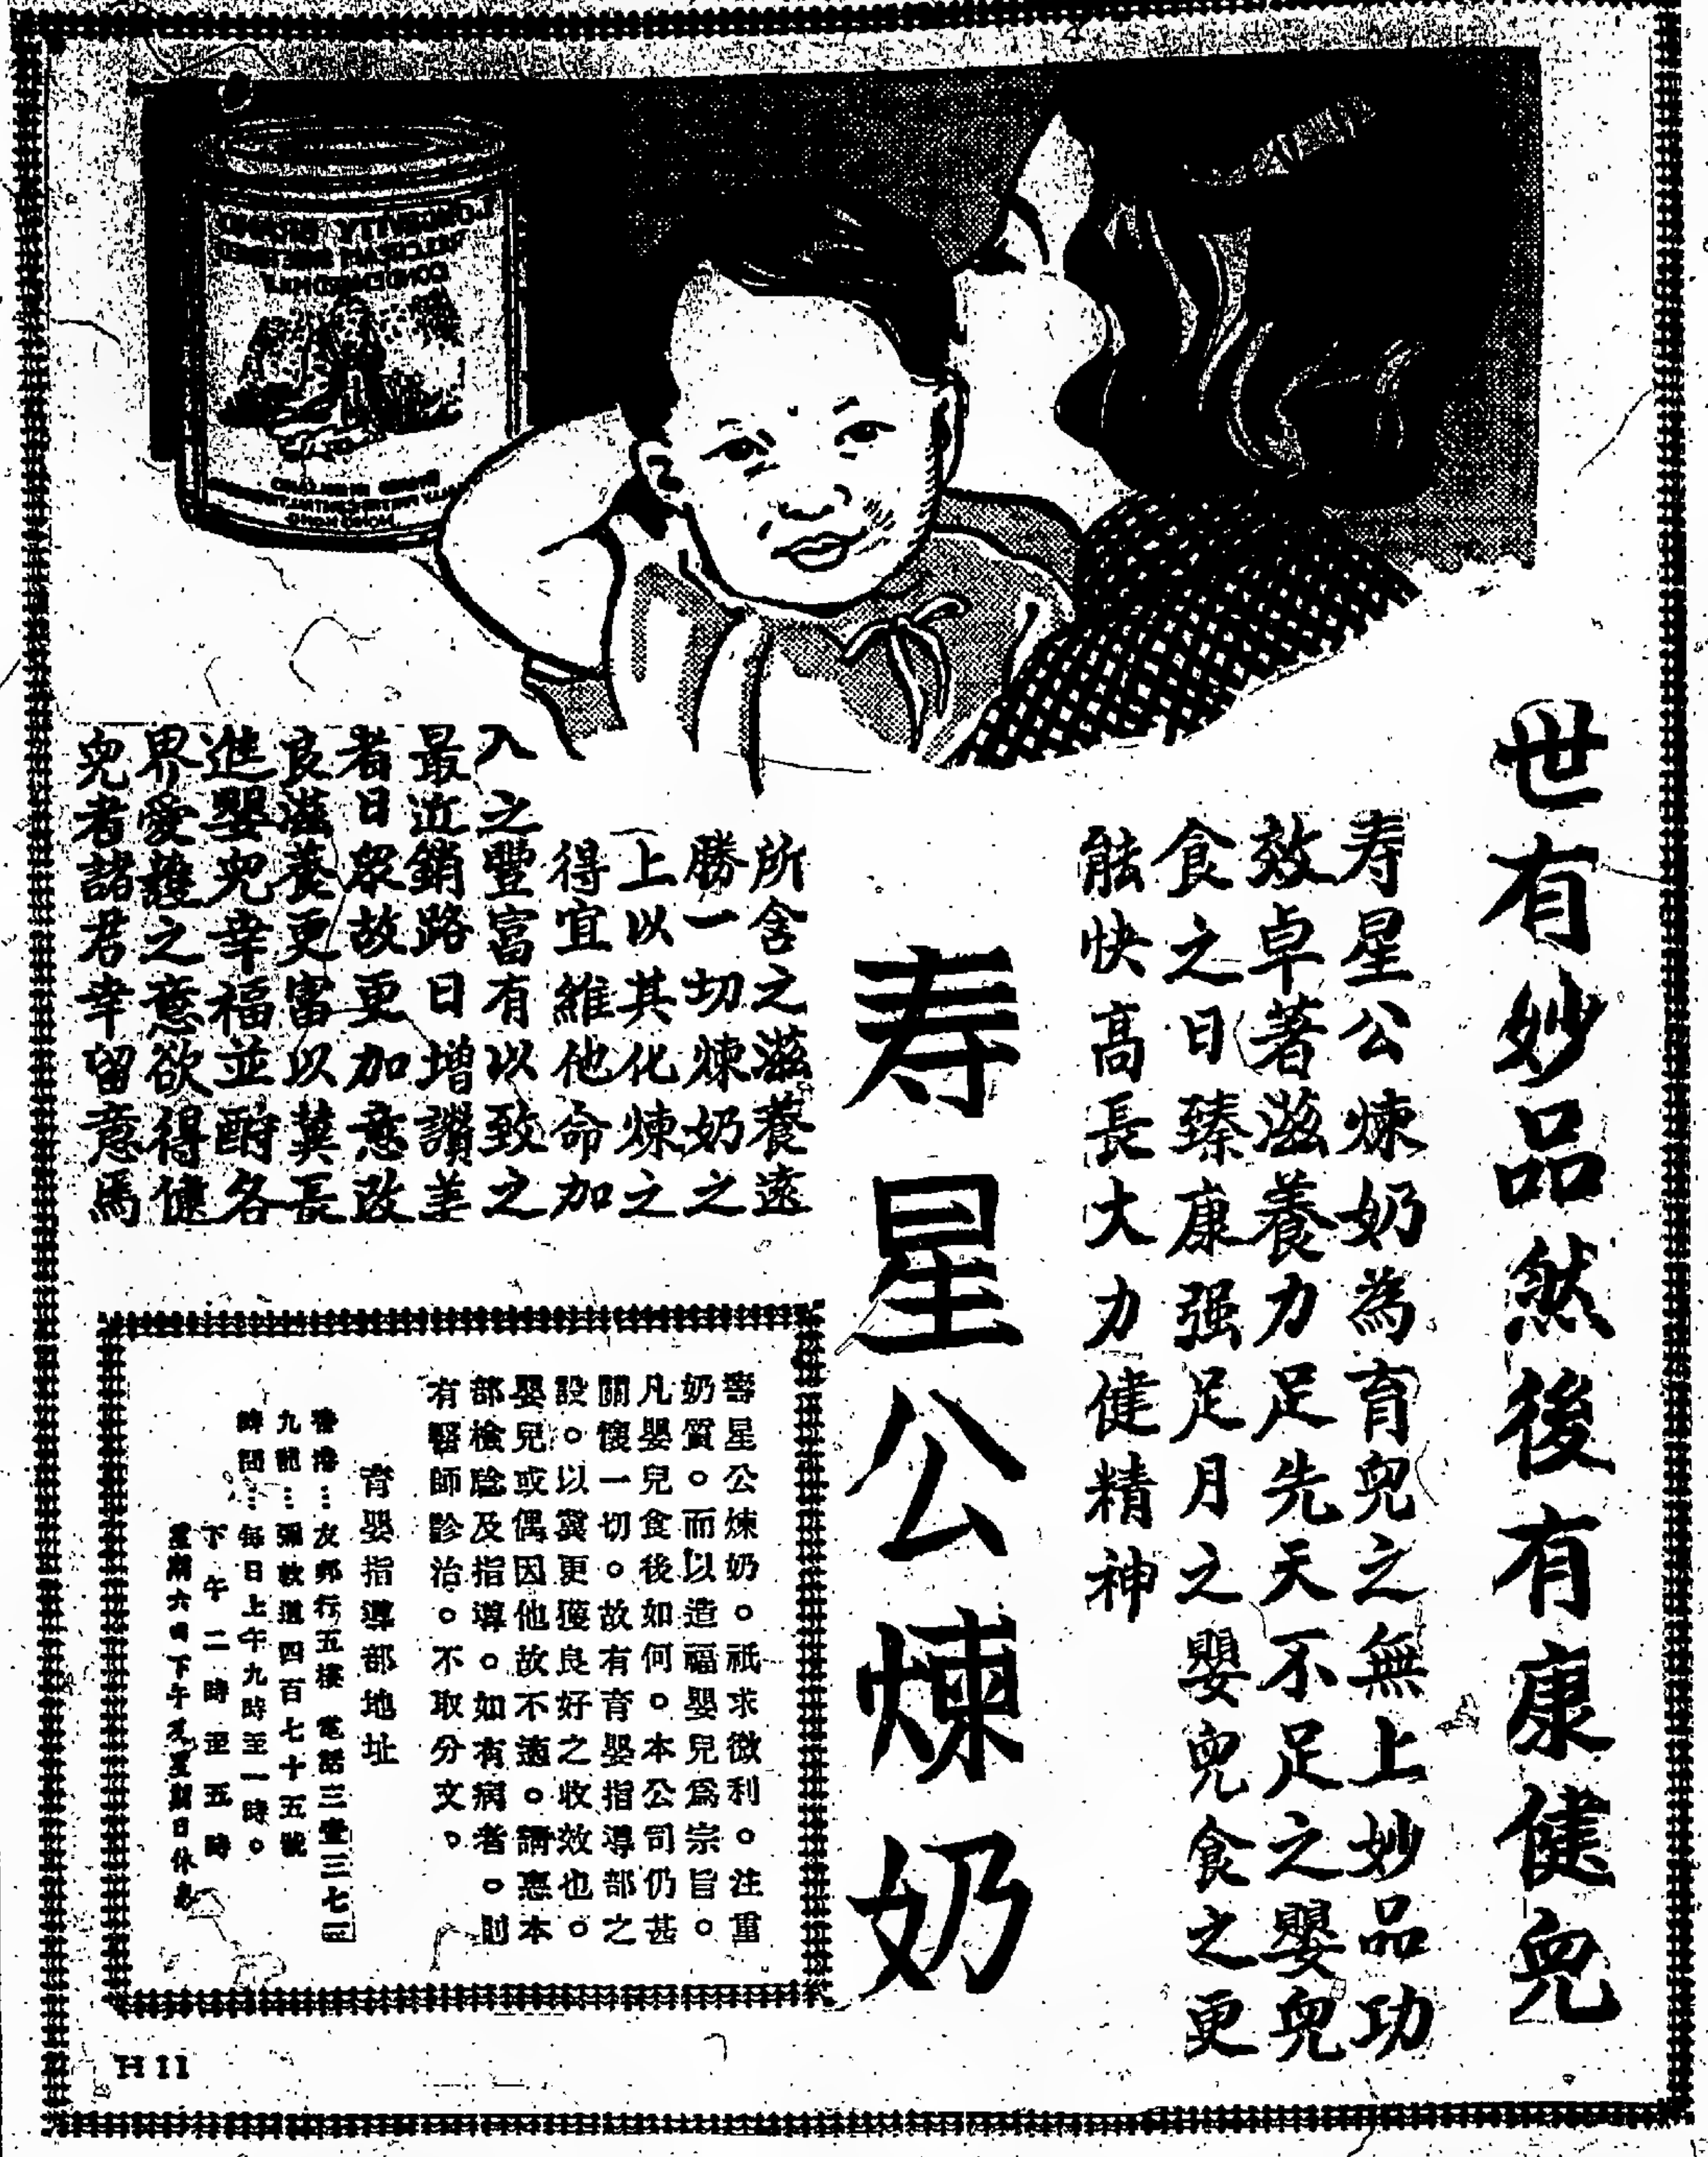 世有妙品然後有康健兒
寿星公煉奶為育兒之無上妙品功
效卓著滋養力足先天不足之嬰兒
食之日臻康强足月之嬰兒食之更
能快高長大力健精神
寿星公煉奶
所含之滋養遠
勝一切煉奶之
上以其化煉之
得宜維他命加
入之豐富有以致之
最近銷路日增讚美
者日眾故更加意改
良滋養更富以冀長
進嬰兒幸福並酧各
界愛護之意欲得健
兒者諸君幸留意焉
壽星公煉奶。祇求微利。注重
奶質。而以造福嬰兒爲宗旨。
凡嬰兒食後如何。本公司仍甚
關懷一切。故有育嬰指導部之
設。以冀更獲良好之收效也。
嬰兒或偶因他故不適。請惠本
部檢驗及指導。如有病者。則
有醫師診治。不取分文。
育嬰指導部地址
香港：友邦行五樓 電話三壹三七二
九龍：彌敦道四百七十五號
時間：每日上午九時至一時。
下午二時至五時
星期六日下午及星期日休息
LONGEVITY BRAND
FULL CREAM SWEETENED
CONDENSED MILK
HONG KONG
H 11